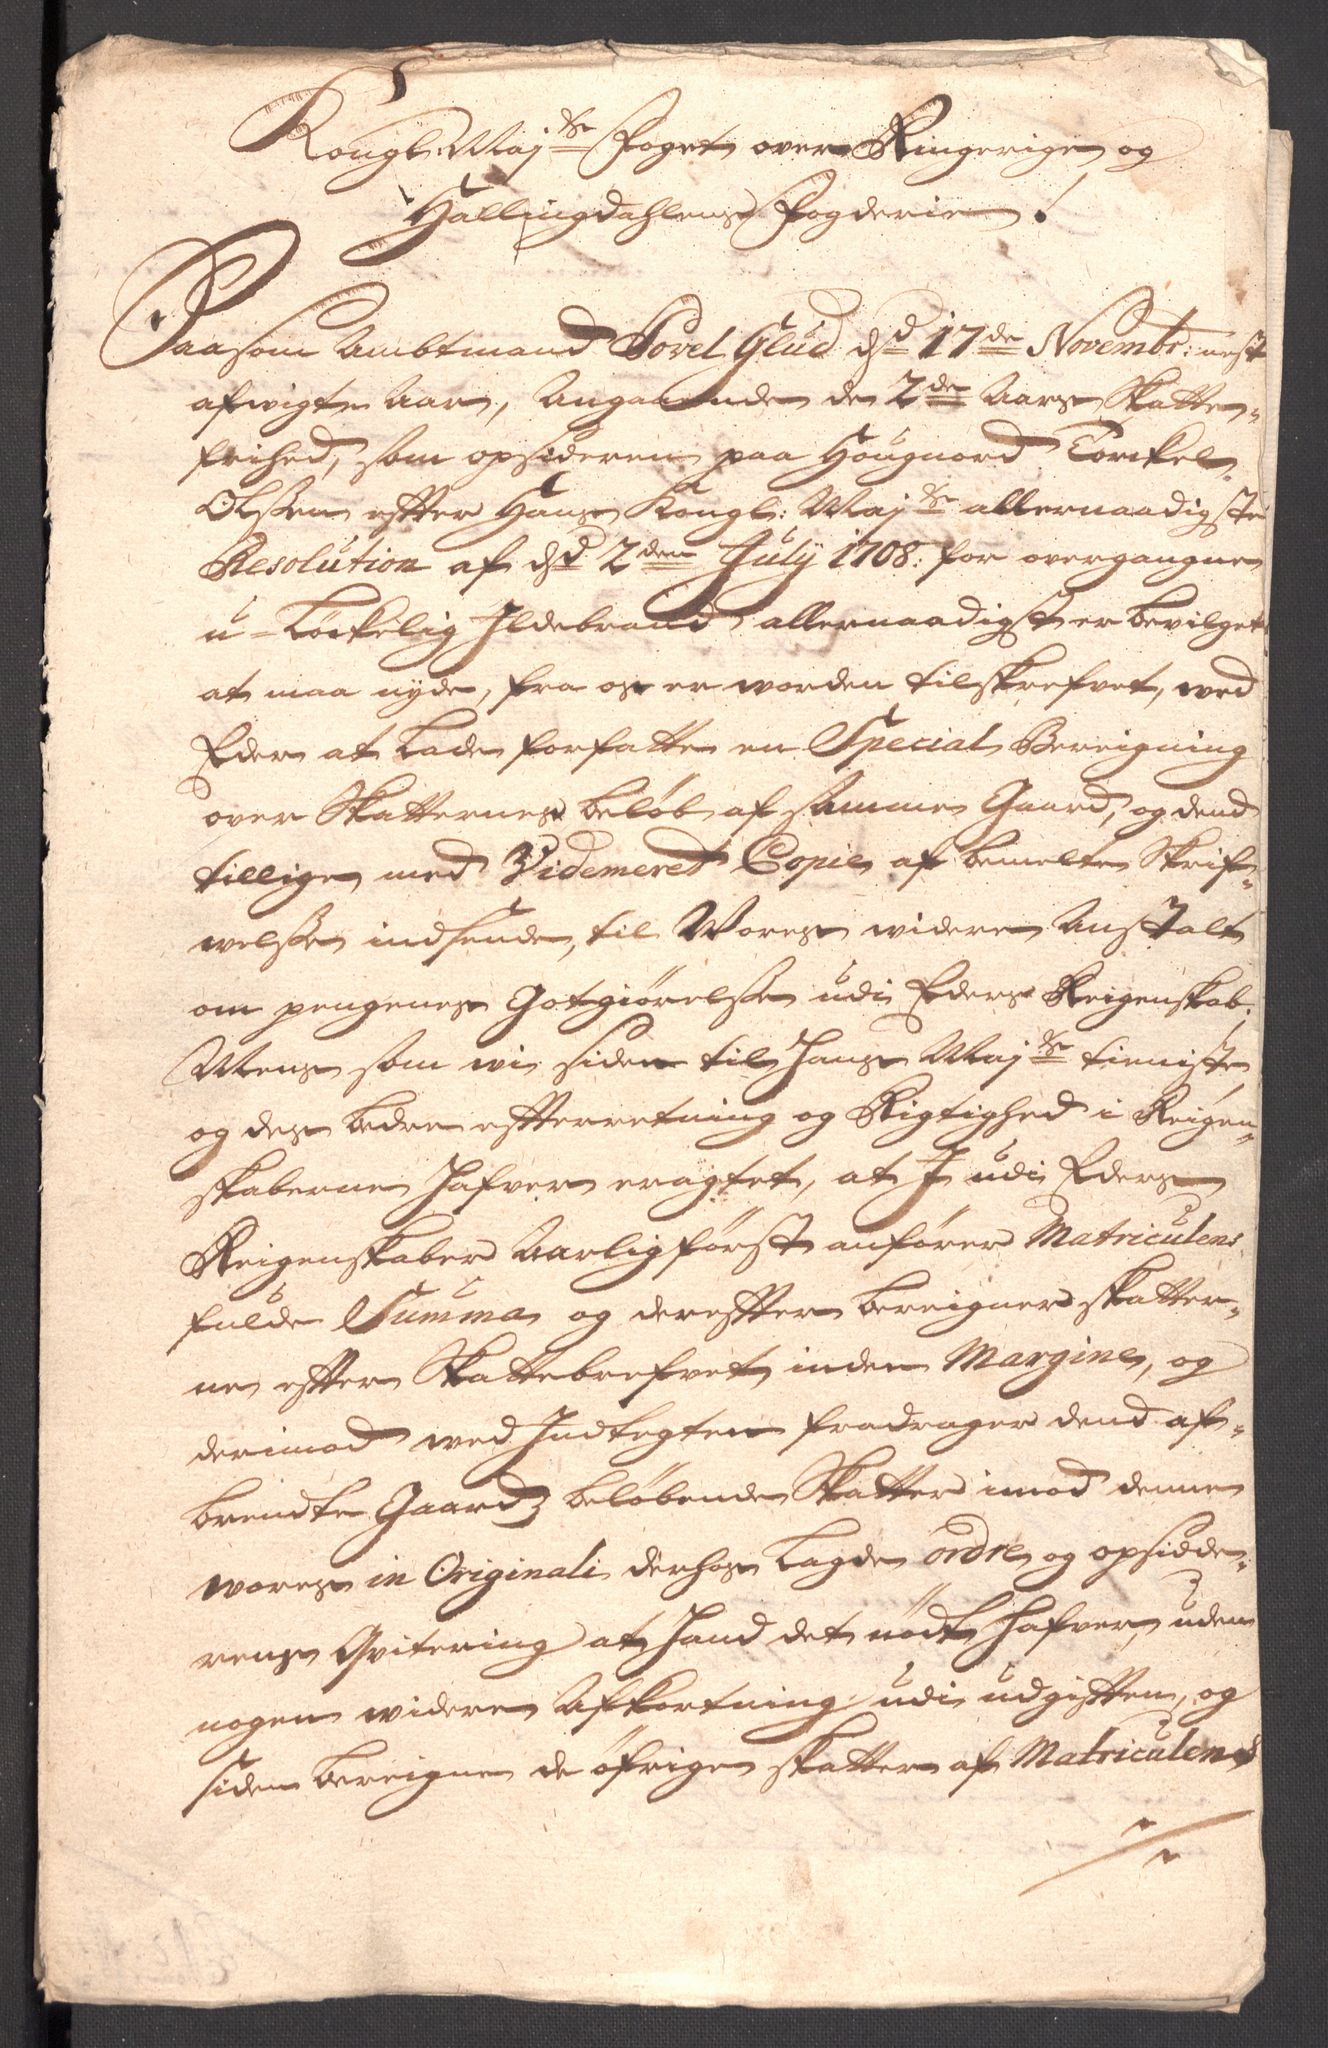 Kongl: Maj:ts Foget over Ringerige og
Hallingdahlens Fogderie!
Saasom Ambtmand Povel Glud dd 17de Novembr: nest
afwigte Aar, Angaaende de 2de Aars Skatte-
frihed, som opsideren paa Hougnord Torkel
Olssen effter Hans Kongl: Maj:ts allernaadigste
Resolution af dd 2den July 1708. for overgangne
u-Løckelig Ildebrand allernaadigst er bevilget
at maa nyde, fra os er worden tilskrefvet, wed
Eder at lade forfatte en Special Bereigning
over Skatternes beløb af samme Gaard, og dend
tillige med Videmeret Copie af bemelte Skrif-
welsse indsende, til Wores widere Anstalt
om pengenes Gotgiørelsse udi Eders Reigenskab.
Mens som wi siden til Hans Maj:ts tieniste
og des bedre effterretning og Rigtighed i Reigen-
skaberne hafver eragtet, at I udi Eders
Reigenskaber Aarlig først anfører Matriculens
fulde Summa og dereffter bereigner skatter-
ne effter Skattebrefvet inden Margine, og
derimod wed Indtegten fradrager dend af-
brendte Gaards beløbende Skatter imod denne
wores in Originali derhos lagde ordre og opsidde-
rens Qvitering at hand det nødt hafver, uden
nogen widere Afkortning udi udgifften, og
siden bereigne de øfrige skatter af Matriculens